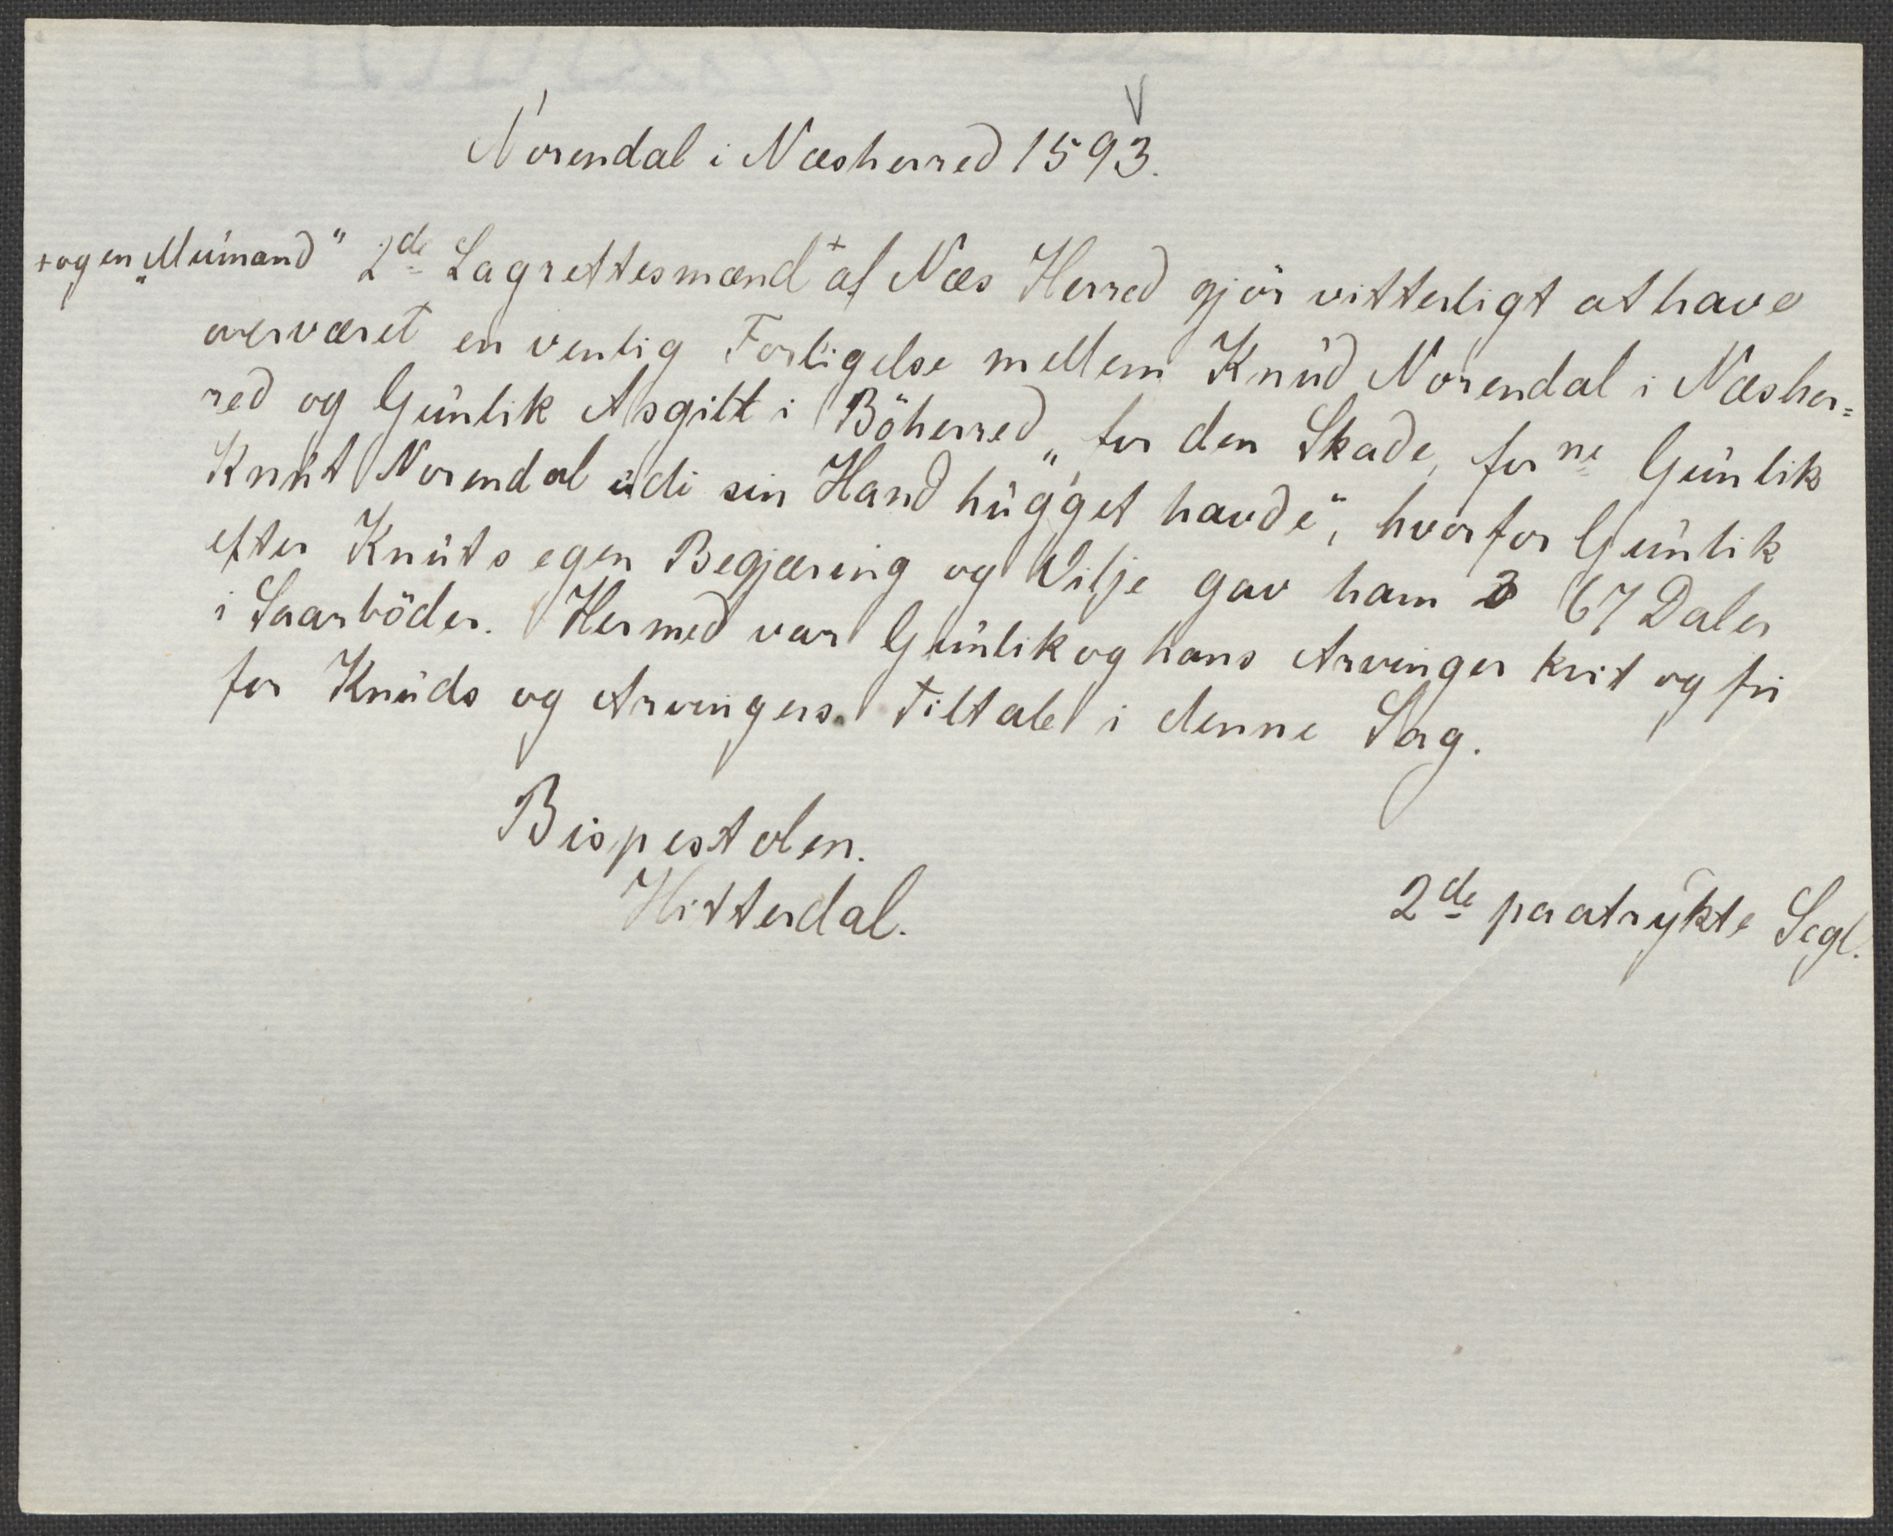 V
Norendal i Næsherred 1593.
+ og en „Meúmand" 2de Lagrettesmænd + af Næs Herred gjör vitterligt at have
overværet en venlig Forligelse mellem Knúd Norendal i Næsher=
red og Gúnlik Asgilt i Böherred „for den Skade, forne Gúnlik
Knút Norendal údi sin Hand húgget havde", hvorfor Gúnlik
efter Knúts egen Begjæring og Vilje gav ham 67 Daler
i Saarböder. Hermed var Gúnlik og hans Arvinger kvit og fri
for Knúds og Arvingers Tiltale i denne Sag.
Bispestolen.
Hitterdal.
2de paatrykte Segl.